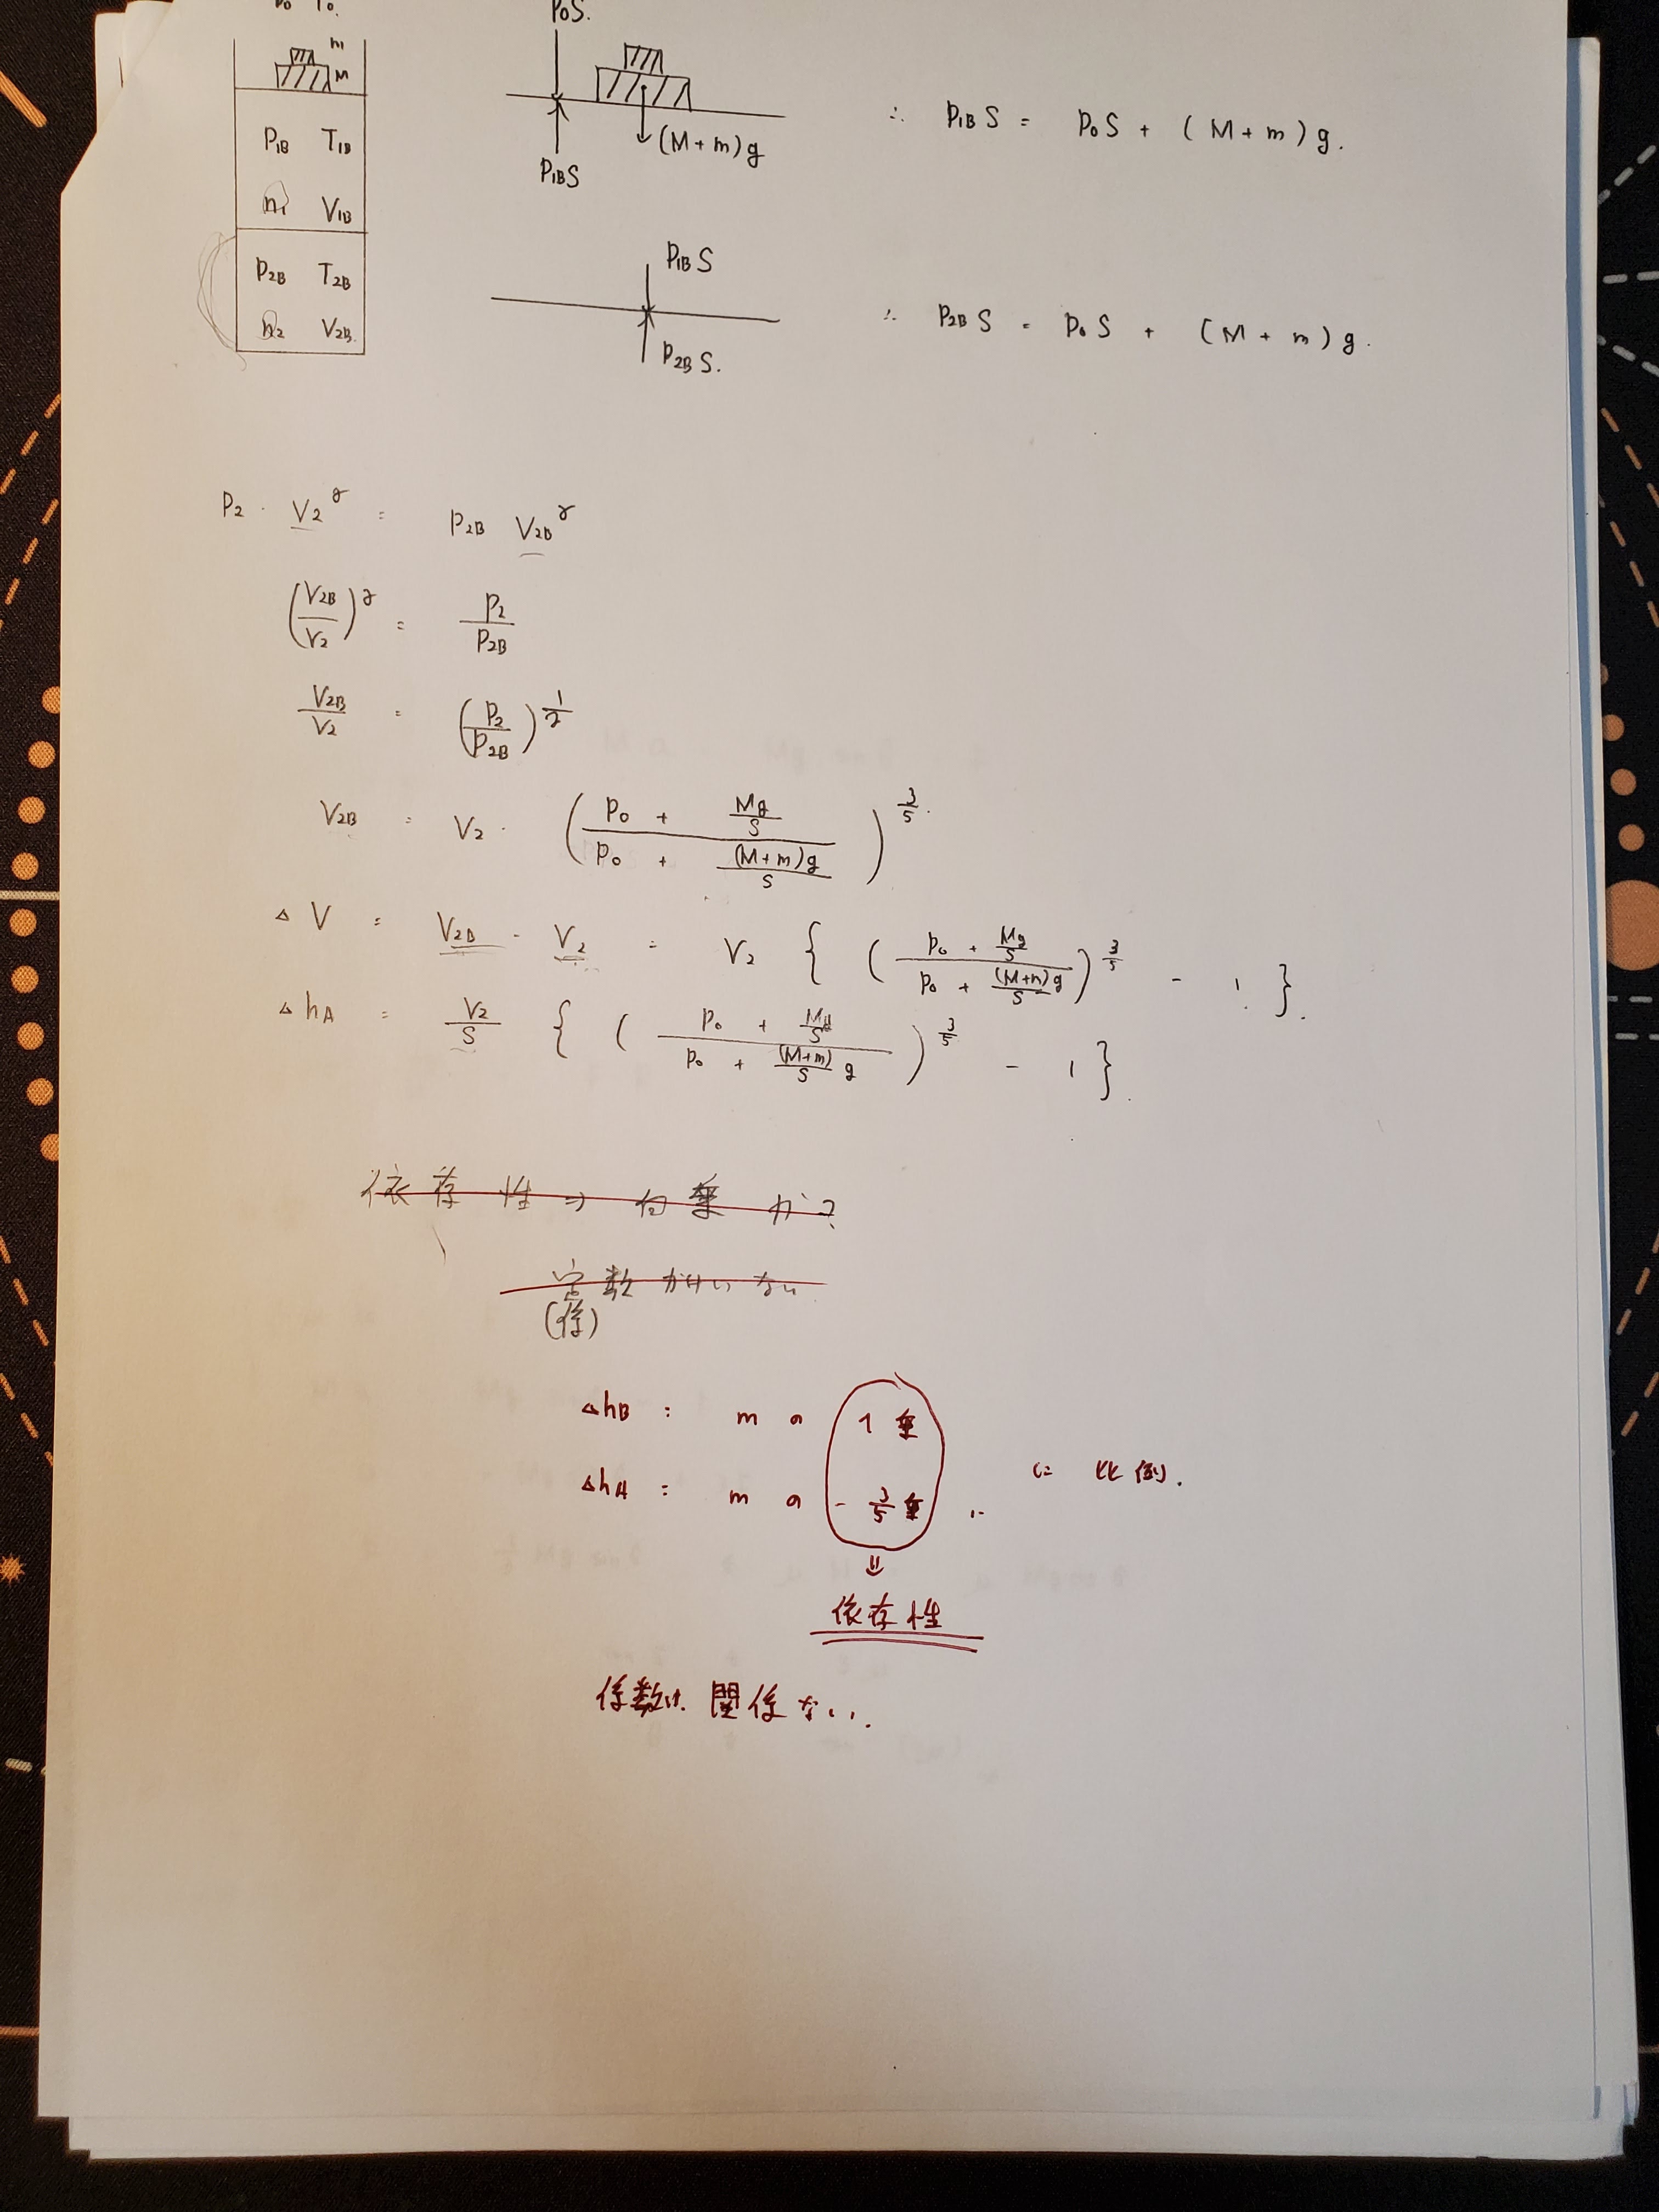 P₀ T₀.
P₀S.
m
M
P₁B T₁B
n₁ V₁B
P₂B T₂B
n₂ V₂B.
(M+m)g
P₁BS
∴ P₁B S = P₀ S + (M+m)g.
P₁B S
P₂B S.
∴ P₂B S = P₀ S + (M+m)g.
P₂ · V₂^γ = P₂B V₂B^γ
(V₂B/V₂)^γ = P₂/P₂B
V₂B/V₂ = (P₂/P₂B)^(1/γ)
V₂B = V₂ · ((P₀ + Mg/S)/(P₀ + (M+m)g/S))^(3/5).
△V = V₂B - V₂ = V₂ { ((P₀ + Mg/S)/(P₀ + (M+m)g/S))^(3/5) - 1 }.
△hA = V₂/S { ((P₀ + Mg/S)/(P₀ + (M+m)/S g))^(3/5) - 1 }.
依存性 ⇒ 何乗か?
定数がけいない
(係)
△hB : m の 1乗
△hA : m の -3/5乗 に比例.
⇓
依存性
係数は関係ない.